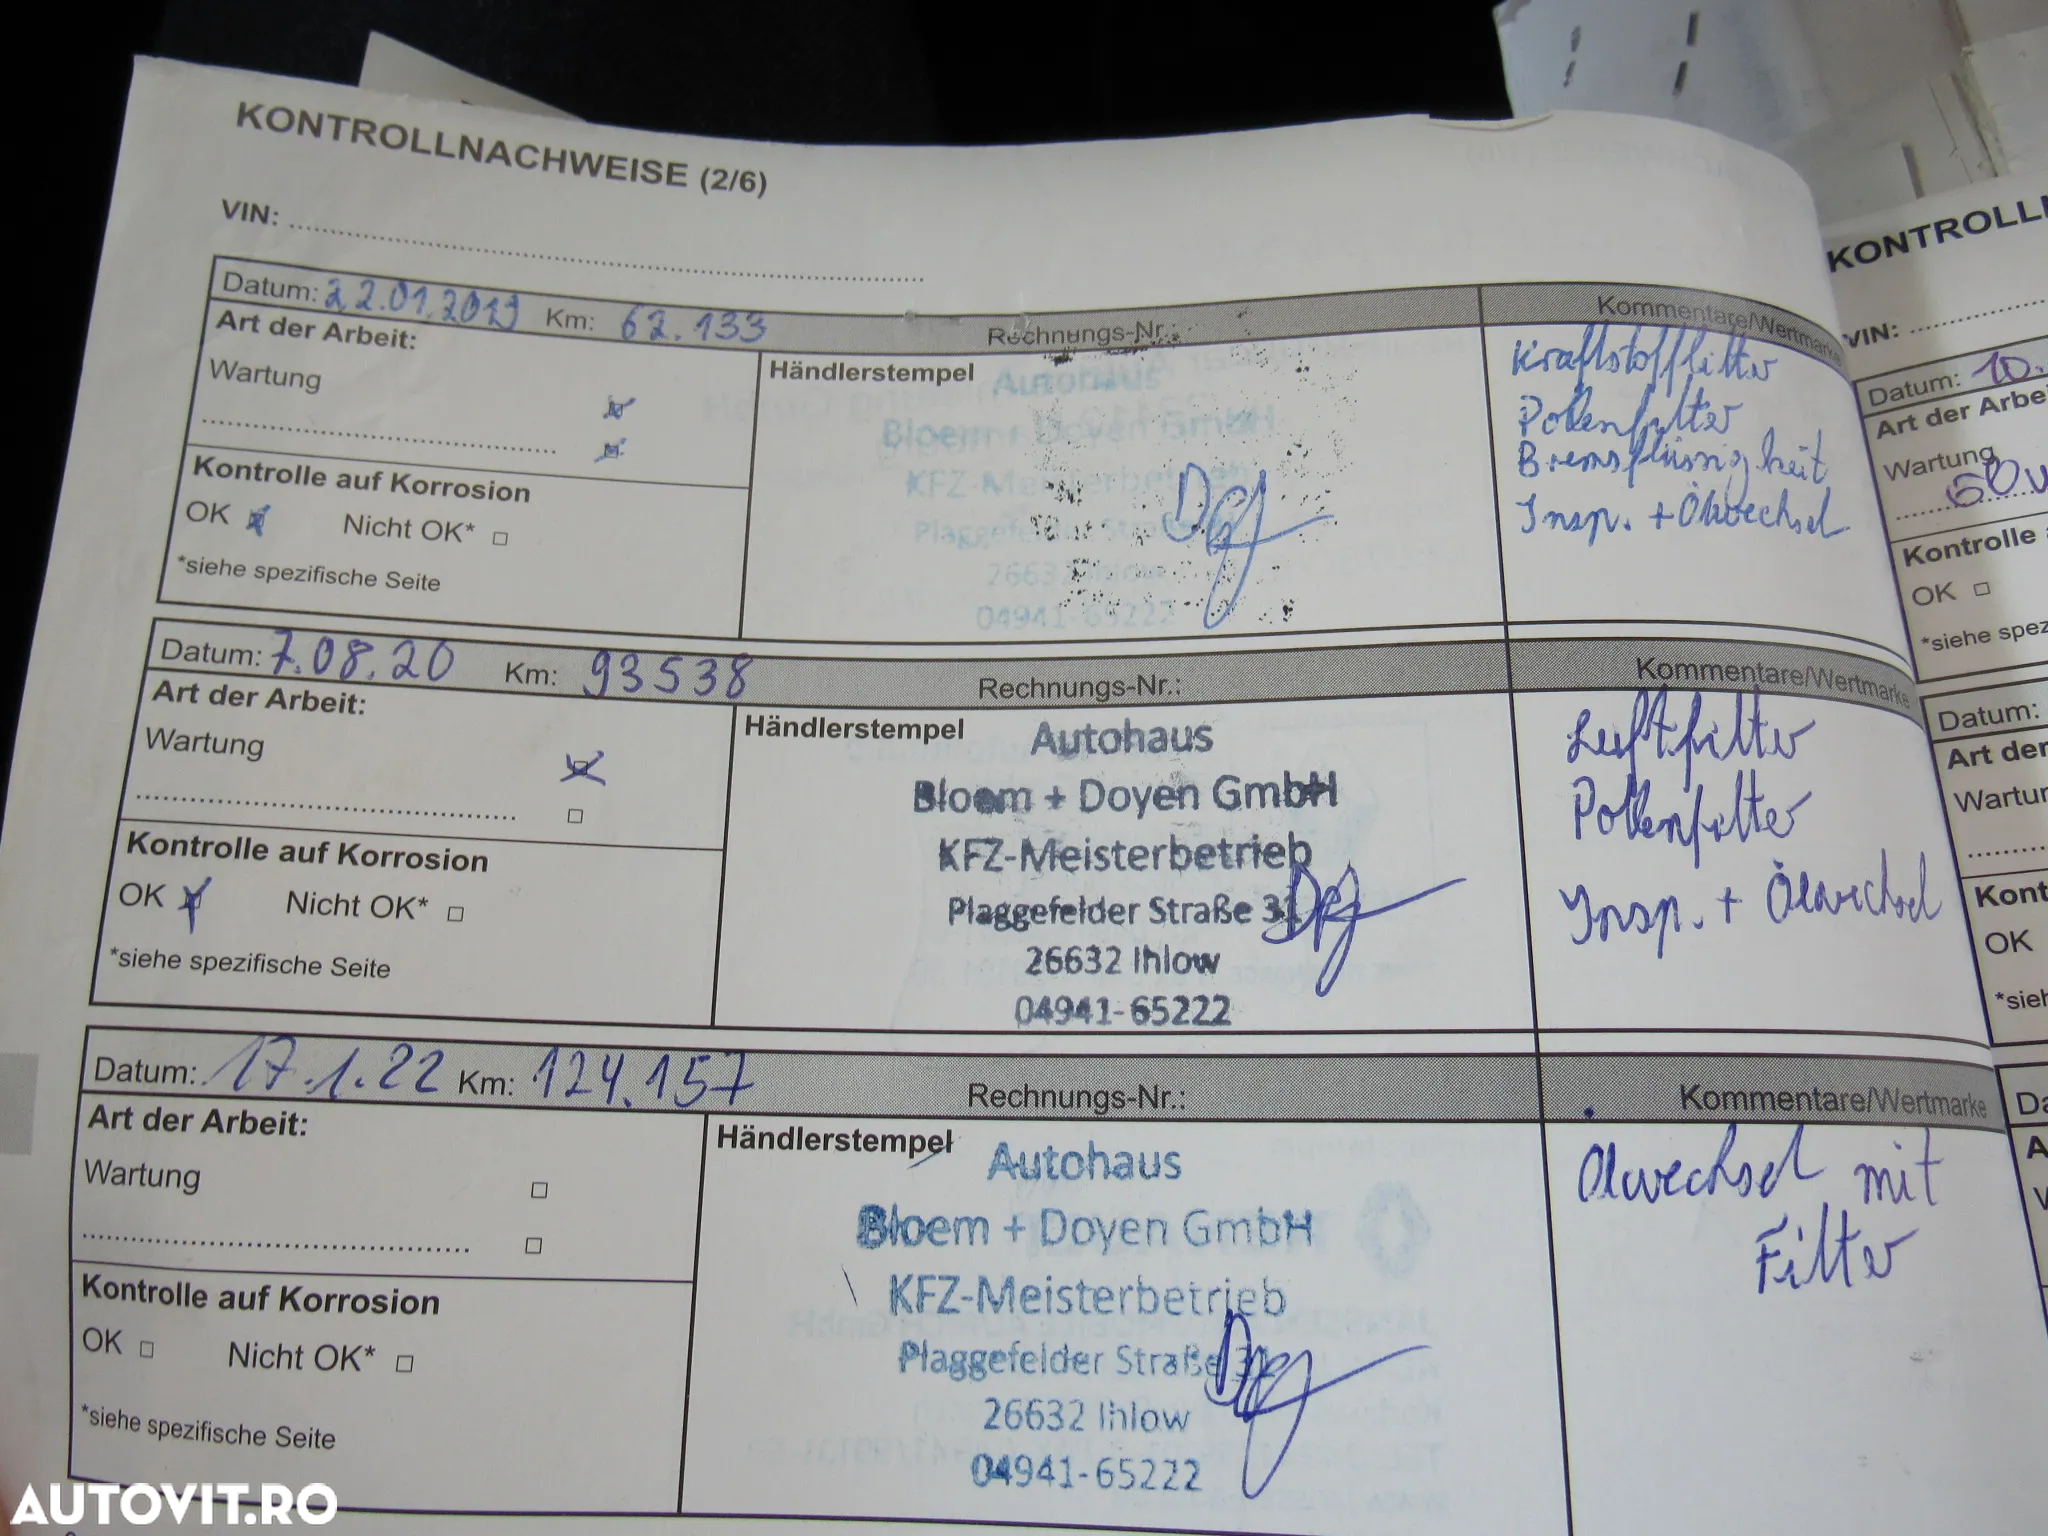 KONTROLLNACHWEISE (2/6)
VIN:
Datum: 22.01.2019 Km: 62.133 Rechnungs-Nr.: Kommentare/Wertmarke
Art der Arbeit:
Wartung
Kontrolle auf Korrosion
OK Nicht OK*
*siehe spezifische Seite
Händlerstempel
Autohaus
Bloem + Doyen GmbH
KFZ-Meisterbetrieb
Plaggefelder Straße 31
26632 Ihlow
04941-65222
Kraftstofffilter
Pollenfilter
Bremsflüssigkeit
Insp. + Ölwechsel
Datum: 7.08.20 Km: 93538 Rechnungs-Nr.: Kommentare/Wertmarke
Art der Arbeit:
Wartung
Kontrolle auf Korrosion
OK Nicht OK*
*siehe spezifische Seite
Händlerstempel
Autohaus
Bloem + Doyen GmbH
KFZ-Meisterbetrieb
Plaggefelder Straße 31
26632 Ihlow
04941-65222
Luftfilter
Pollenfilter
Insp. + Ölwechsel
Datum: 17.1.22 Km: 124.157 Rechnungs-Nr.: Kommentare/Wertmarke
Art der Arbeit:
Wartung
Kontrolle auf Korrosion
OK Nicht OK*
*siehe spezifische Seite
Händlerstempel
Autohaus
Bloem + Doyen GmbH
KFZ-Meisterbetrieb
Plaggefelder Straße 31
26632 Ihlow
04941-65222
Ölwechsel mit
Filter
KONTROLL
VIN:
Datum: 10.
Art der Arbe
Wartung
Kontrolle
OK
*siehe spez
Datum:
Art der
Wartu
Kont
OK
*sieh
AUTOVIT.RO